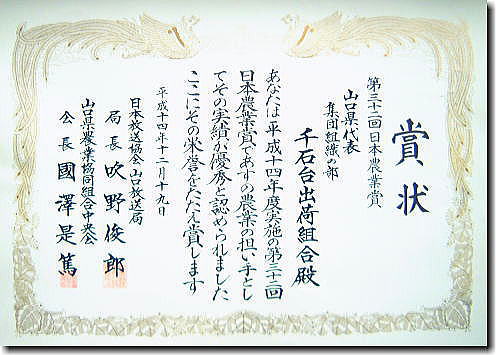 賞状
第三十二回日本農業賞
山口県代表
集団組織の部
千石台出荷組合殿
あなたは平成十四年度実施の第三十二回
日本農業賞であすの農業の担い手とし
てその実績が優秀と認められました
ここにその栄誉をたたえ賞します
平成十四年十二月十九日
日本放送協会山口放送局
局長 吹野俊郎
山口県農業協同組合中央会
会長 國澤是篤